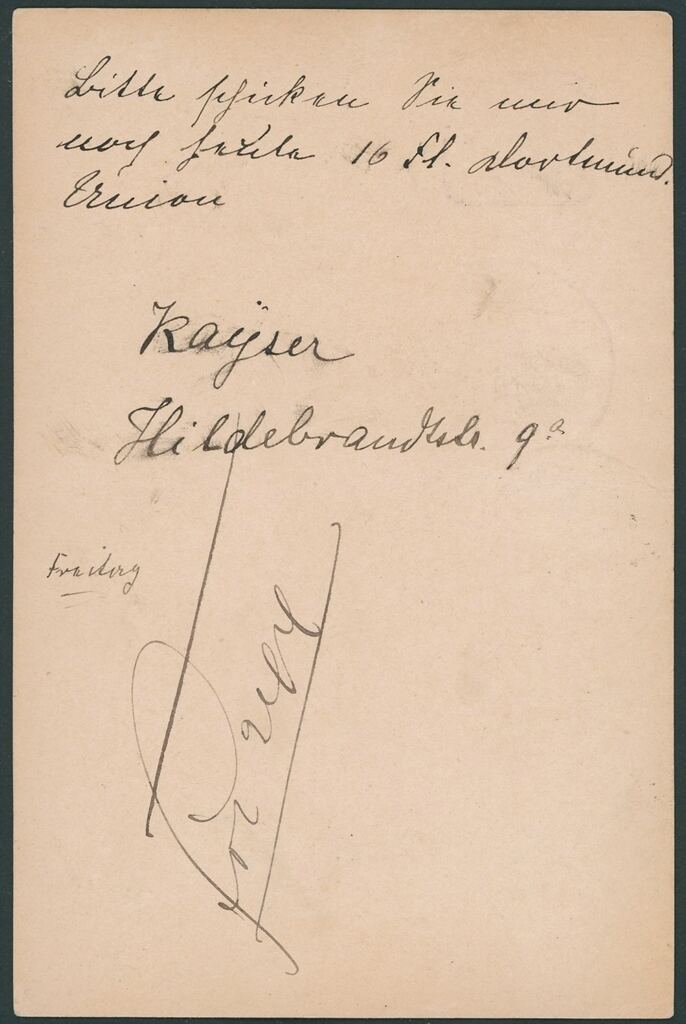 Bitte schicken Sie mir
noch heute 16 Fl. Dortmund.
Union
Kayser
Hildebrandtstr. 9a
Freitag